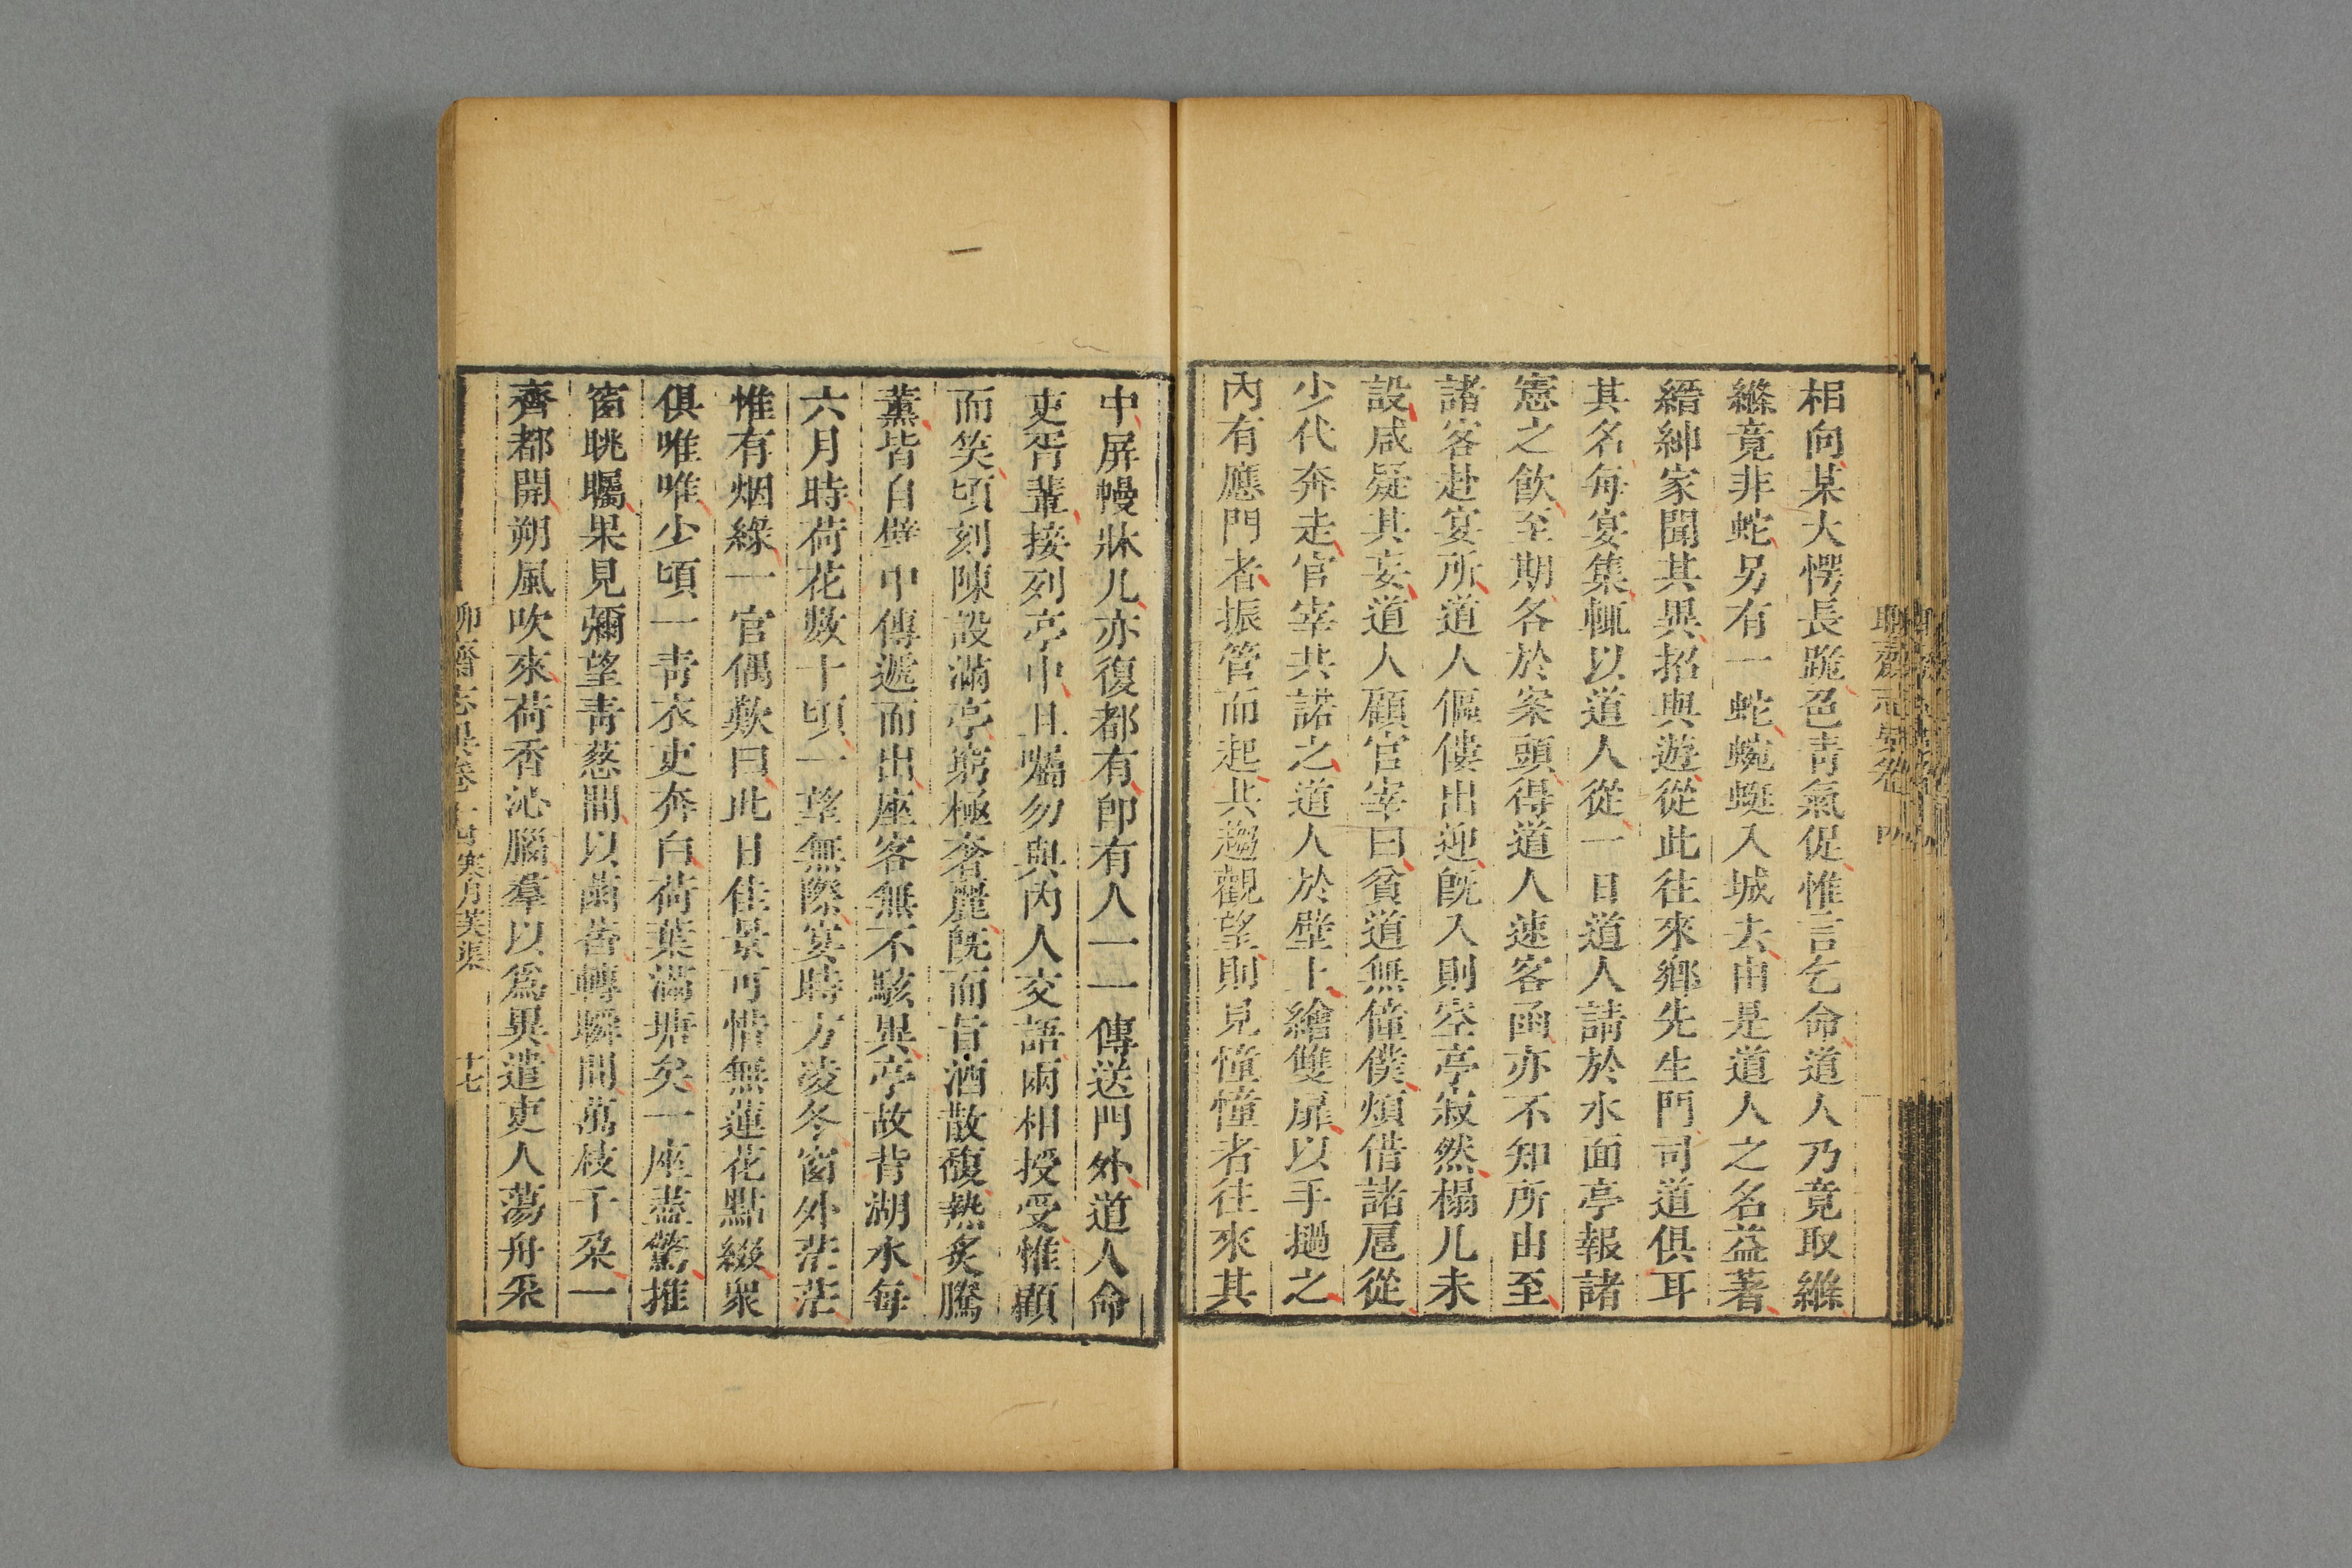 相向某大愕長跪色青氣促惟言乞命道人乃竟取縧
縧竟非蛇另有一蛇蜿蜒入城去由是道人之名益著
縉紳家聞其異招與遊從此往來鄉先生門司道俱耳
其名每宴集輒以道人從一日道人請於水面亭報諸
憲之飲至期各於案頭得道人速客函亦不知所由至
諸客赴宴所道人傴僂出迎旣入則空亭寂然榻几未
設咸疑其妄道人顧官宰曰貧道無僮僕煩借諸扈從
少代奔走官宰共諾之道人於壁上繪雙扉以手撾之
內有應門者振管而起共趨觀望則見憧憧者往來其
中屏幔牀几亦復都有卽有人一一傳送門外道人命
吏胥輩接列亭中且囑勿與內人交語兩相授受惟顧
而笑頃刻陳設滿亭窮極奢麗旣而旨酒散馥熱炙騰
薰皆自壁中傳遞而出座客無不駭異亭故背湖水每
六月時荷花數十頃一望無際宴時方凌冬窗外茫茫
惟有烟綠一官偶歎曰此日佳景可惜無蓮花點綴衆
俱唯唯少頃一靑衣吏奔白荷葉滿塘矣一座盡驚推
窗眺矚果見彌望靑葱間以菡萏轉瞬間萬枝千朶一
齊都開朔風吹來荷香沁腦羣以爲異遣吏人蕩舟采
聊齋志異卷十四寒月芙蕖 十七